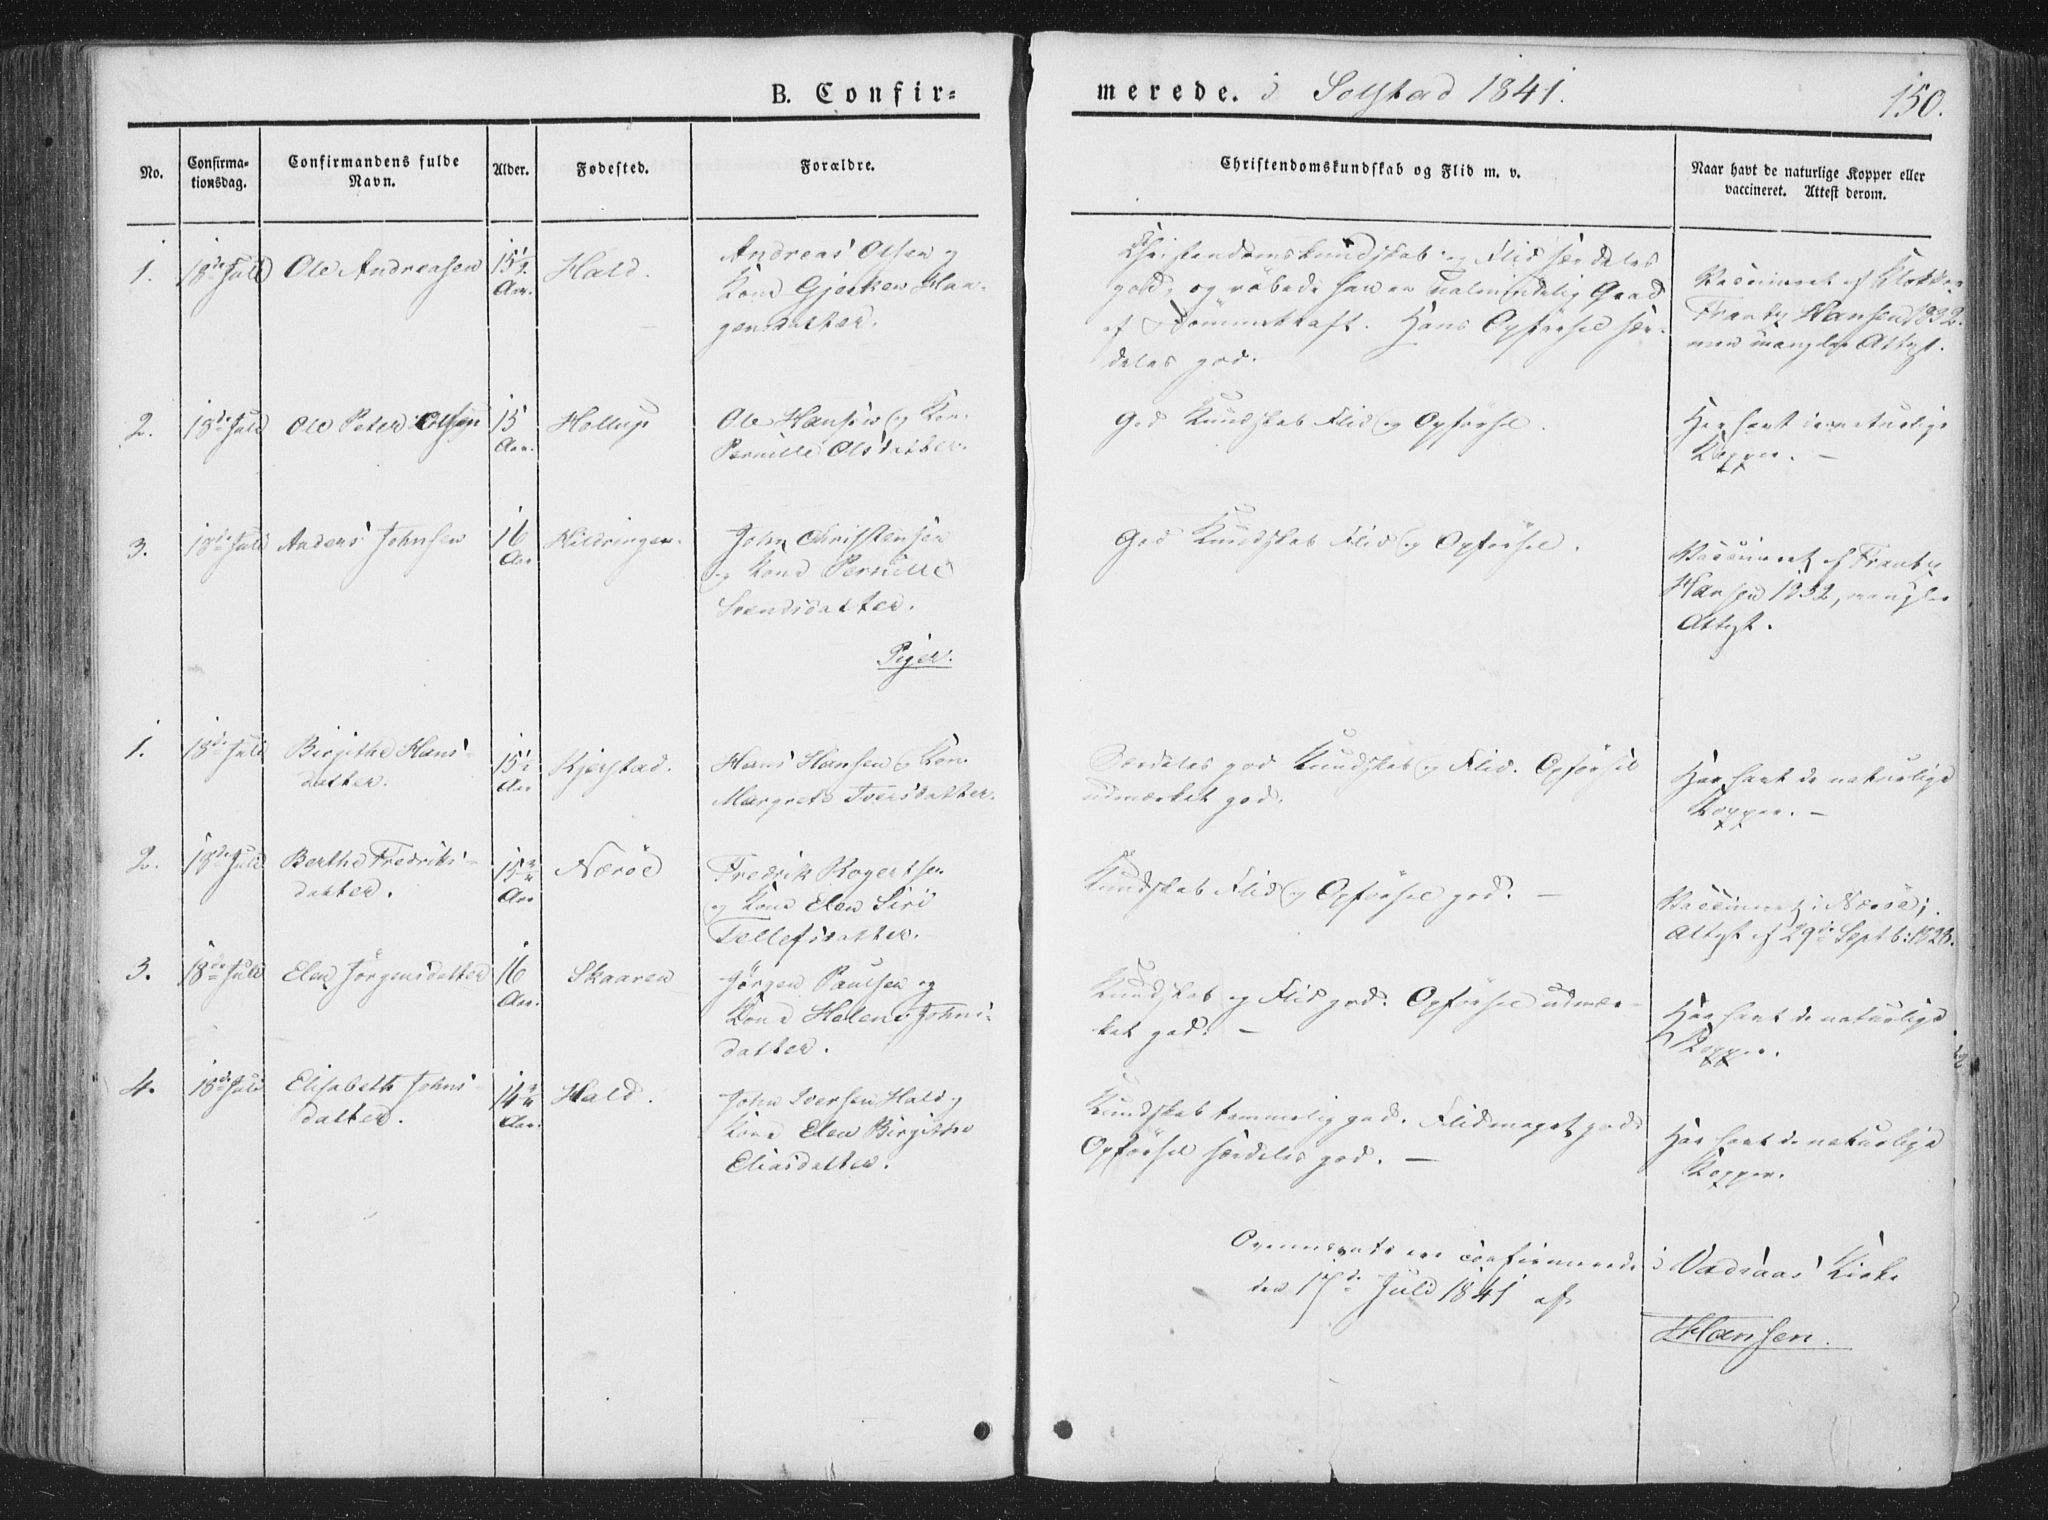 B. Confir=
merede. i Solstad 1841.
150.
No.
Confirma-
tionsdag.
Confirmandens fulde
Navn.
Alder.
Fødested.
Forældre.
Christendomskundskab og Flid m. v.
Naar havt de naturlige Kopper eller
vaccineret. Attest derom.
1. 18de Juli Ole Andreasen 15½ Aar. Hald.
Andreas Olsen og
Kone Gjertru Haa-
gensdatter.
Christendomskundskab og Flid særdeles
god, og en ualmindelig Grad
af Dömmekraft. Hans Opförsel sær-
deles god.
Vaccineret af Klokker
Frantz Hansen 1832.
men mangler Attest.
2. 18de Juli Ole Peter Olsen 15 Aar. Hollup
Ole Hansen og Kone
Pernille Olsdatter.
God Kundskab Flid og Opförsel.
Har havt de naturlige
Kopper. —
3. 18de Juli Anders Johnsen 16 Aar Hildringen.
John Christensen
og Kone Pernille
Svendsdatter.
God Kundskab Flid og Opförsel.
Vaccineret af Frantz
Hansen 1832, mangler
Attest.
Piger.
1. 18de Juli Birgithe Hans-
datter. 15½ Aar Kjerstad.
Hans Hansen og Kone
Margrete Iversdatter.
Særdeles god Kundskab og Flid. Opförsel
udmærket god.
Har havt de naturlige
Kopper. —
2. 18de Juli Berthe Fredriks-
datter. 15¾ Aar Nærøe
Fredrik Rogertsen
og Kone Elen Siri
Tellefsdatter.
Kundskab Flid og Opförsel god. —
Vaccineret i Næröe;
Attest af 29de Septb: 1828.
3. 18de Juli Elen Jörgensdatter 16 Aar. Skaaren
Jørgen Paulsen og
Kone Helene Johns-
datter.
Kundskab og Flid god. Opförsel udmær-
ket god. —
Har havt de naturlige
Kopper.
4. 18de Juli Elisabeth Johns-
datter. 14¾ Aar. Hald.
John Iversen Hald og
Kone Elen Birgithe
Eliasdatter.
Kundskab temmelig god. Flid meget god.
Opförsel særdeles god. —
Har havt de naturlige
Kopper.
Ovennævnte ere confirmerede i Vadsaas Kirke
den Juli 1841 af
Hansen.